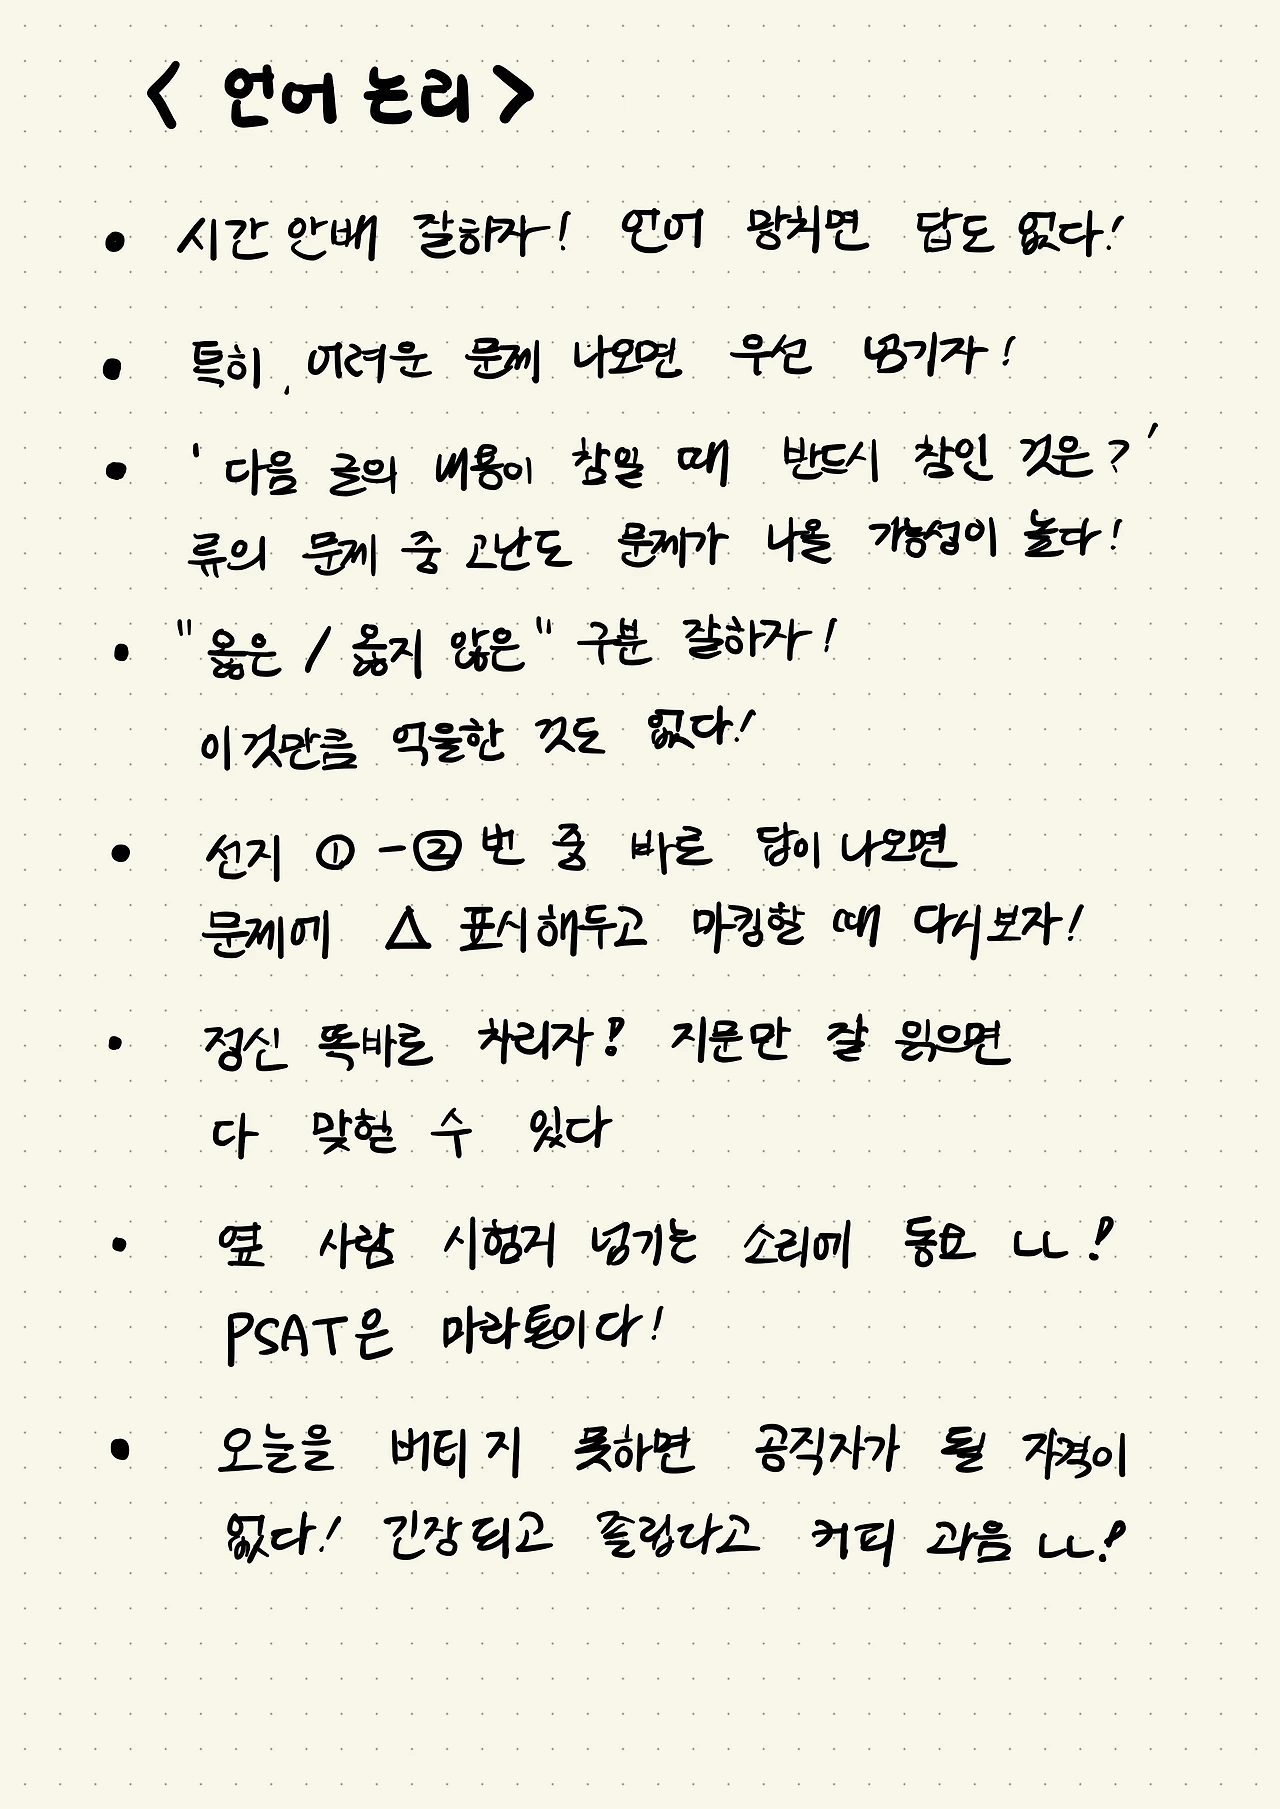 < 언어 논리 >
• 시간 안배 잘하자! 언어 망치면 답도 없다!
• 특히, 어려운 문제 나오면 우선 넘기자!
• '다음 글의 내용이 참일 때 반드시 참인 것은?'
류의 문제 중 고난도 문제가 나올 가능성이 높다!
• "옳은 / 옳지 않은" 구분 잘하자!
이것만큼 억울한 것도 없다!
• 선지 ① - ② 번 중 바로 답이 나오면
문제에 △ 표시해두고 마킹할 때 다시보자!
• 정신 똑바로 차리자! 지문만 잘 읽으면
다 맞힐 수 있다
• 옆 사람 시험지 넘기는 소리에 동요 ㄴㄴ!
PSAT은 마라톤이다!
• 오늘을 버티지 못하면 공직자가 될 자격이
없다! 긴장되고 졸립다고 커피 과음 ㄴㄴ!